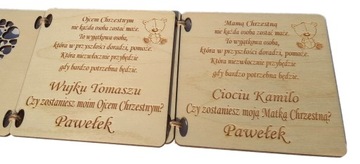 Ojcem Chrzestnym
nie każda osoba zostać może.
To wyjątkowa osoba,
która w przyszłości doradzi, pomoże.
Która niezwłocznie przybędzie
gdy bardzo potrzebna będzie.
Wujku Tomaszu
Czy zostaniesz moim Ojcem Chrzestnym?
Pawełek
Mamą Chrzestną
nie każda osoba zostać może.
To wyjątkowa osoba,
która w przyszłości doradzi, pomoże.
Która niezwłocznie przybędzie
gdy bardzo potrzebna będzie.
Ciociu Kamilo
Czy zostaniesz moją Matką Chrzestną?
Pawełek